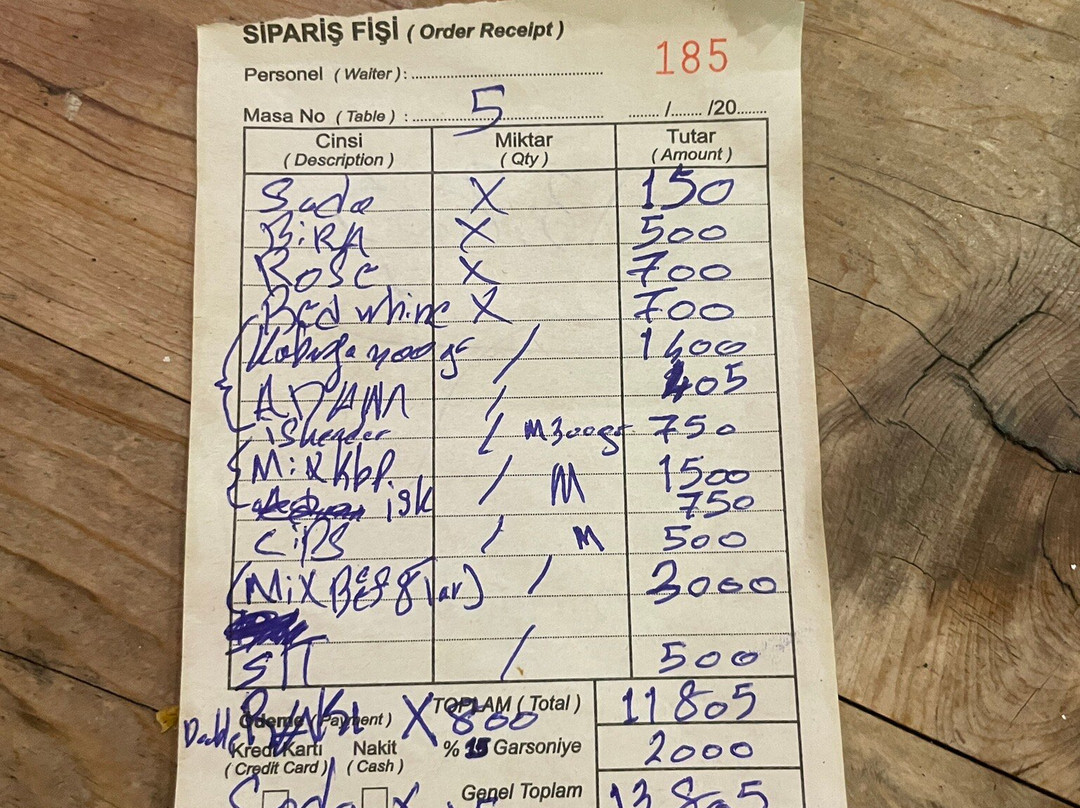 SİPARİŞ FİŞİ ( Order Receipt )
185
Personel ( Waiter ) :
Masa No ( Table ) : 5 ....../....../20......
Cinsi Miktar Tutar
( Description ) ( Qty ) ( Amount )
Soda X 150
BiRA X 500
Rose X 700
Red whine X 700
400 gr / 1400
ADANA / 405
iskender / M300gr 750
Mix Kbp / M 1500
isk 750
CiPS / M 500
(Mix / 3000
/ 500
TOPLAM ( Total ) 11805
Double X 800
Ödeme ( Payment )
Kredi Kartı Nakit % 15 Garsoniye 2000
( Credit Card ) ( Cash )
Soda X Genel Toplam 13805